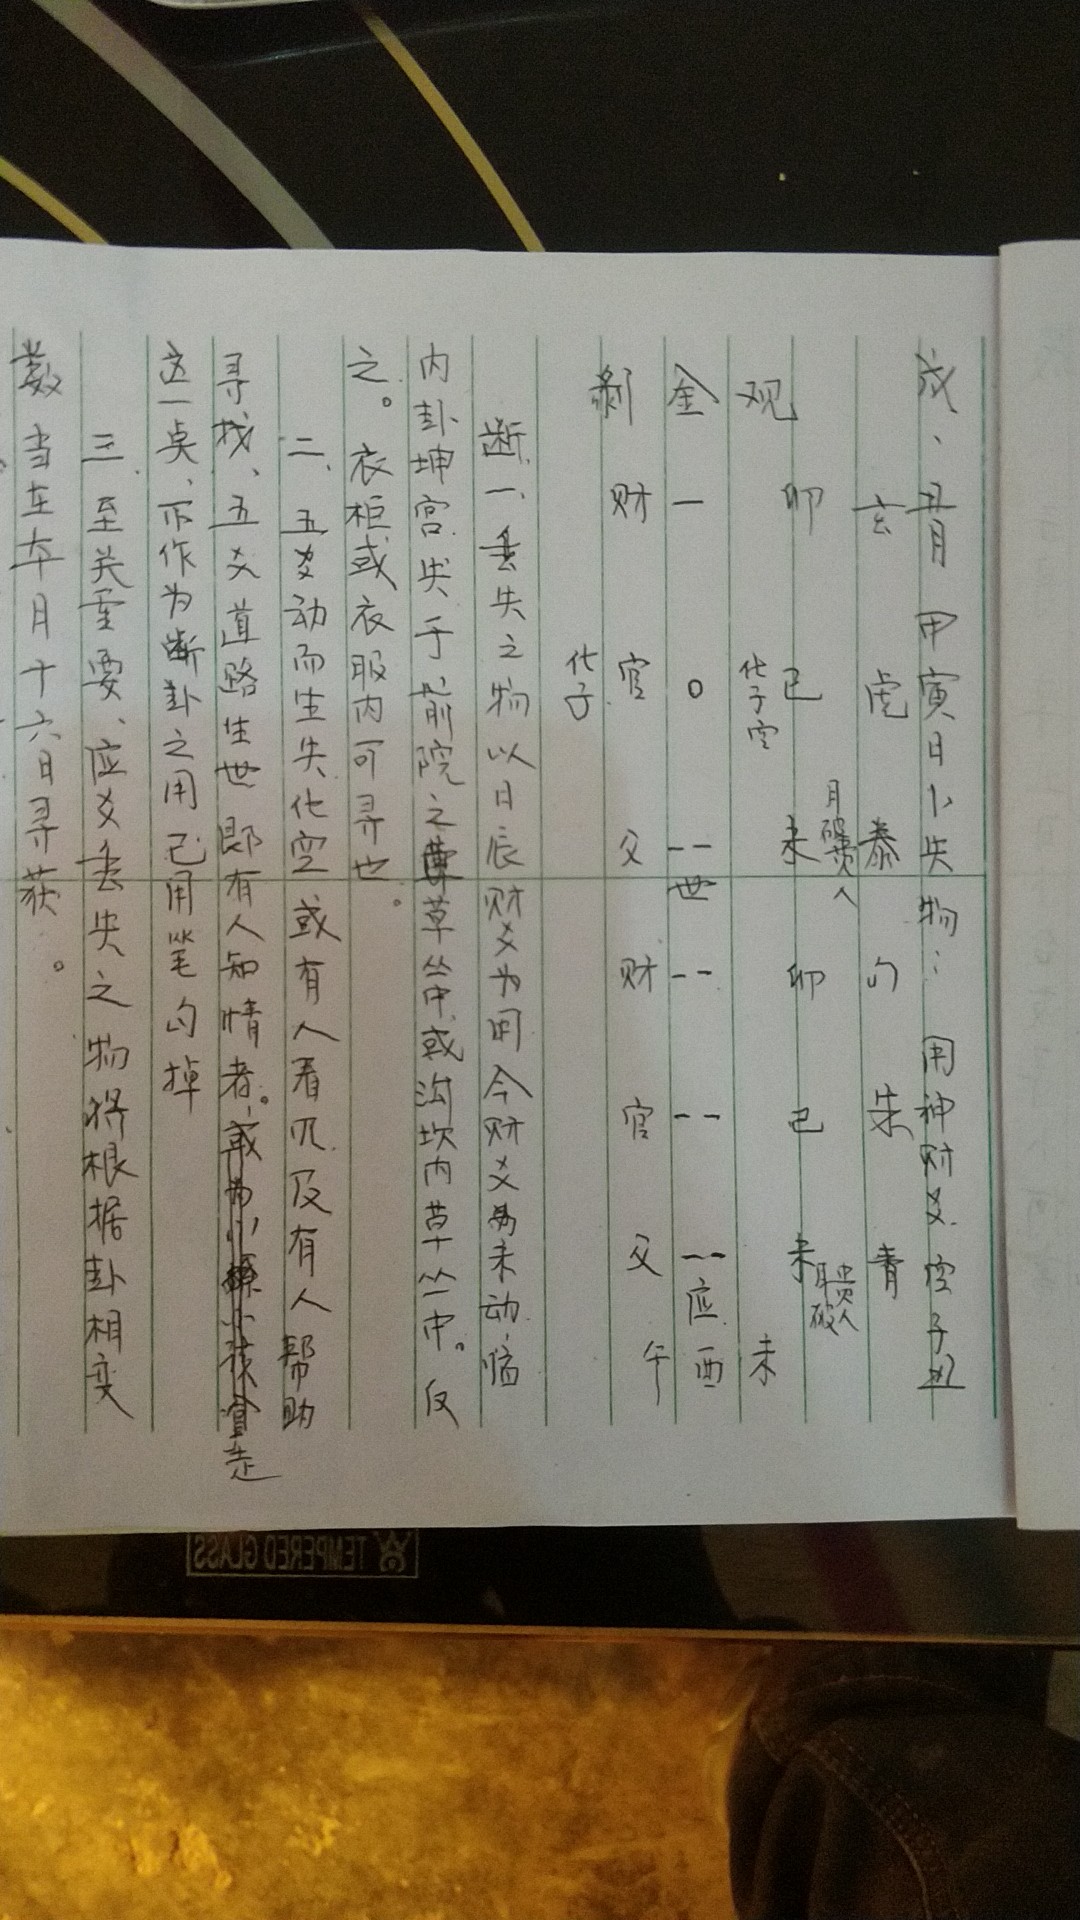 戌、丑月 甲寅日卜失物： 用神财爻 空子丑
玄 虎 泰 勾 朱 青
月破贵人 月破贵人
卯 巳 未 卯 巳 未
观 化子空 未
金 一 〇 -- 世 -- -- -- 应 酉
财 官 父 财 官 父 午
剥 化子
断、一、丢失之物以日辰财爻为用今财爻未动临
内卦坤宫失于前院之草丛中或沟坎内草丛中。反
之。衣柜或衣服内可寻也。
二、五爻动而生失化空或有人看见及有人帮助
寻找、五爻道路生世即有人知情者。或为小孩拿走
这一点、不作为断卦之用已用笔勾掉
三、至关重要、应爻丢失之物将根据卦相变
数当在本月十六日寻获。
TEMPERED GLASS